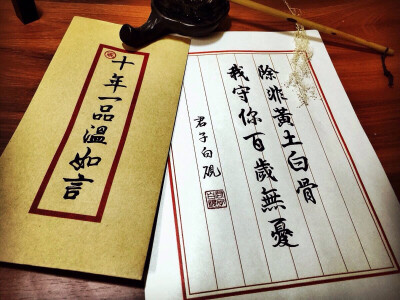 十年一品溫如言
除非黃土白骨
我守你百歲無憂
君子白硯